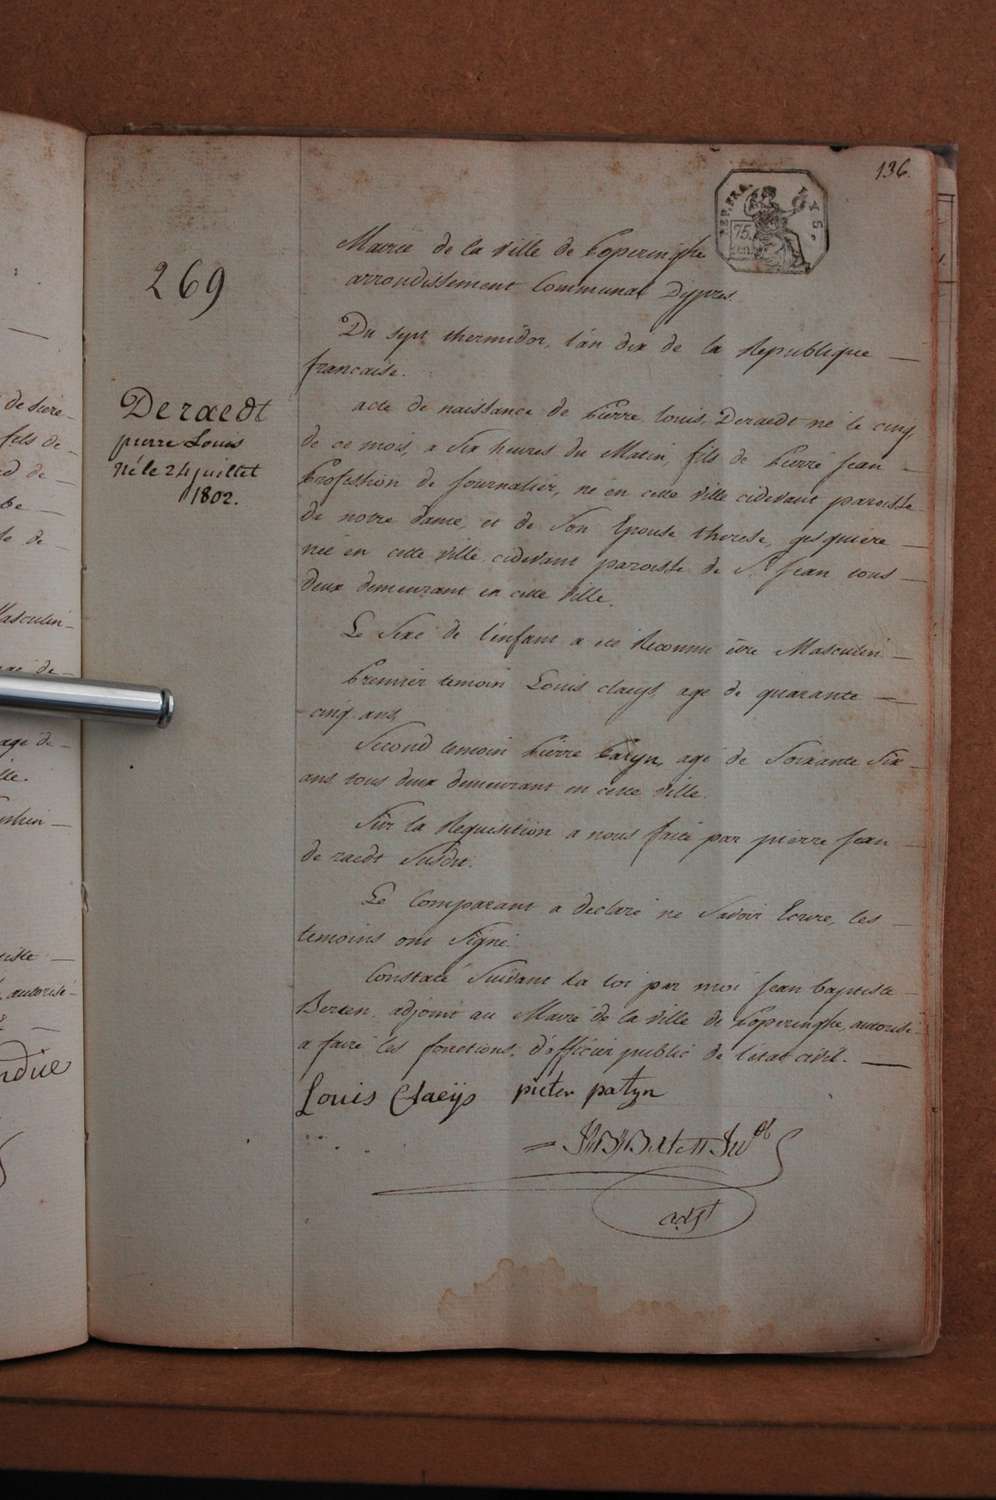 136.
REP. FRA.
75.
cen
269
Mairie de la Ville de Poperinghe
arrondissement Communal Dypres
Du sept thermidor, l'an dix de la Republique —
francaise.
Deraedt
pierre Louis
Né le 24 juillet
1802.
acte de naissance de Pierre Louis, Deraedt né le cinq
de ce mois, a Six heures du Matin, fils de Pierre Jean —
Profession de Journalier, né en cette ville cidevant paroisse
de notre dame, et de Son Epouse therese, gesquiere —
née en cette ville cidevant paroisse de St Jean tous —
deux demeurant en cette Ville.
Le Sexe de l'enfant a été Reconnu être Masculin —
Premier temoin Louis claeys, age de quarante —
cinq ans,
Second temoin Pierre Patyn, agé de Soixante Six —
ans tous deux demeurant en cette Ville.
Sur la Requisition a nous faite par pierre Jean —
de raedt Susdit.
Le Comparant a declaré ne Savoir Ecrire, les —
temoins ont Signé.
Constaté Suivant la loi par moi Jean baptiste
Berten, adjoint au Maire de la ville de Poperinghe, autorisé
a faire les fonctions, d'officier public de l'etat civil. —
Louis Claeÿs pieter patyn
adjt